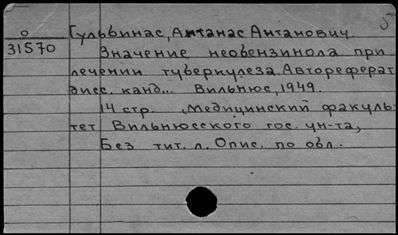 5
0
31570
Гульбинас, Антанас Антанович.
Значение необензинола при
лечении туберкулеза. Автореферат
дисс. канд... Вильнюс, 1949.
14 стр. Медицинский факуль-
тет Вильнюсского гос. ун-та,
Без тит. л. Опис. по обл.